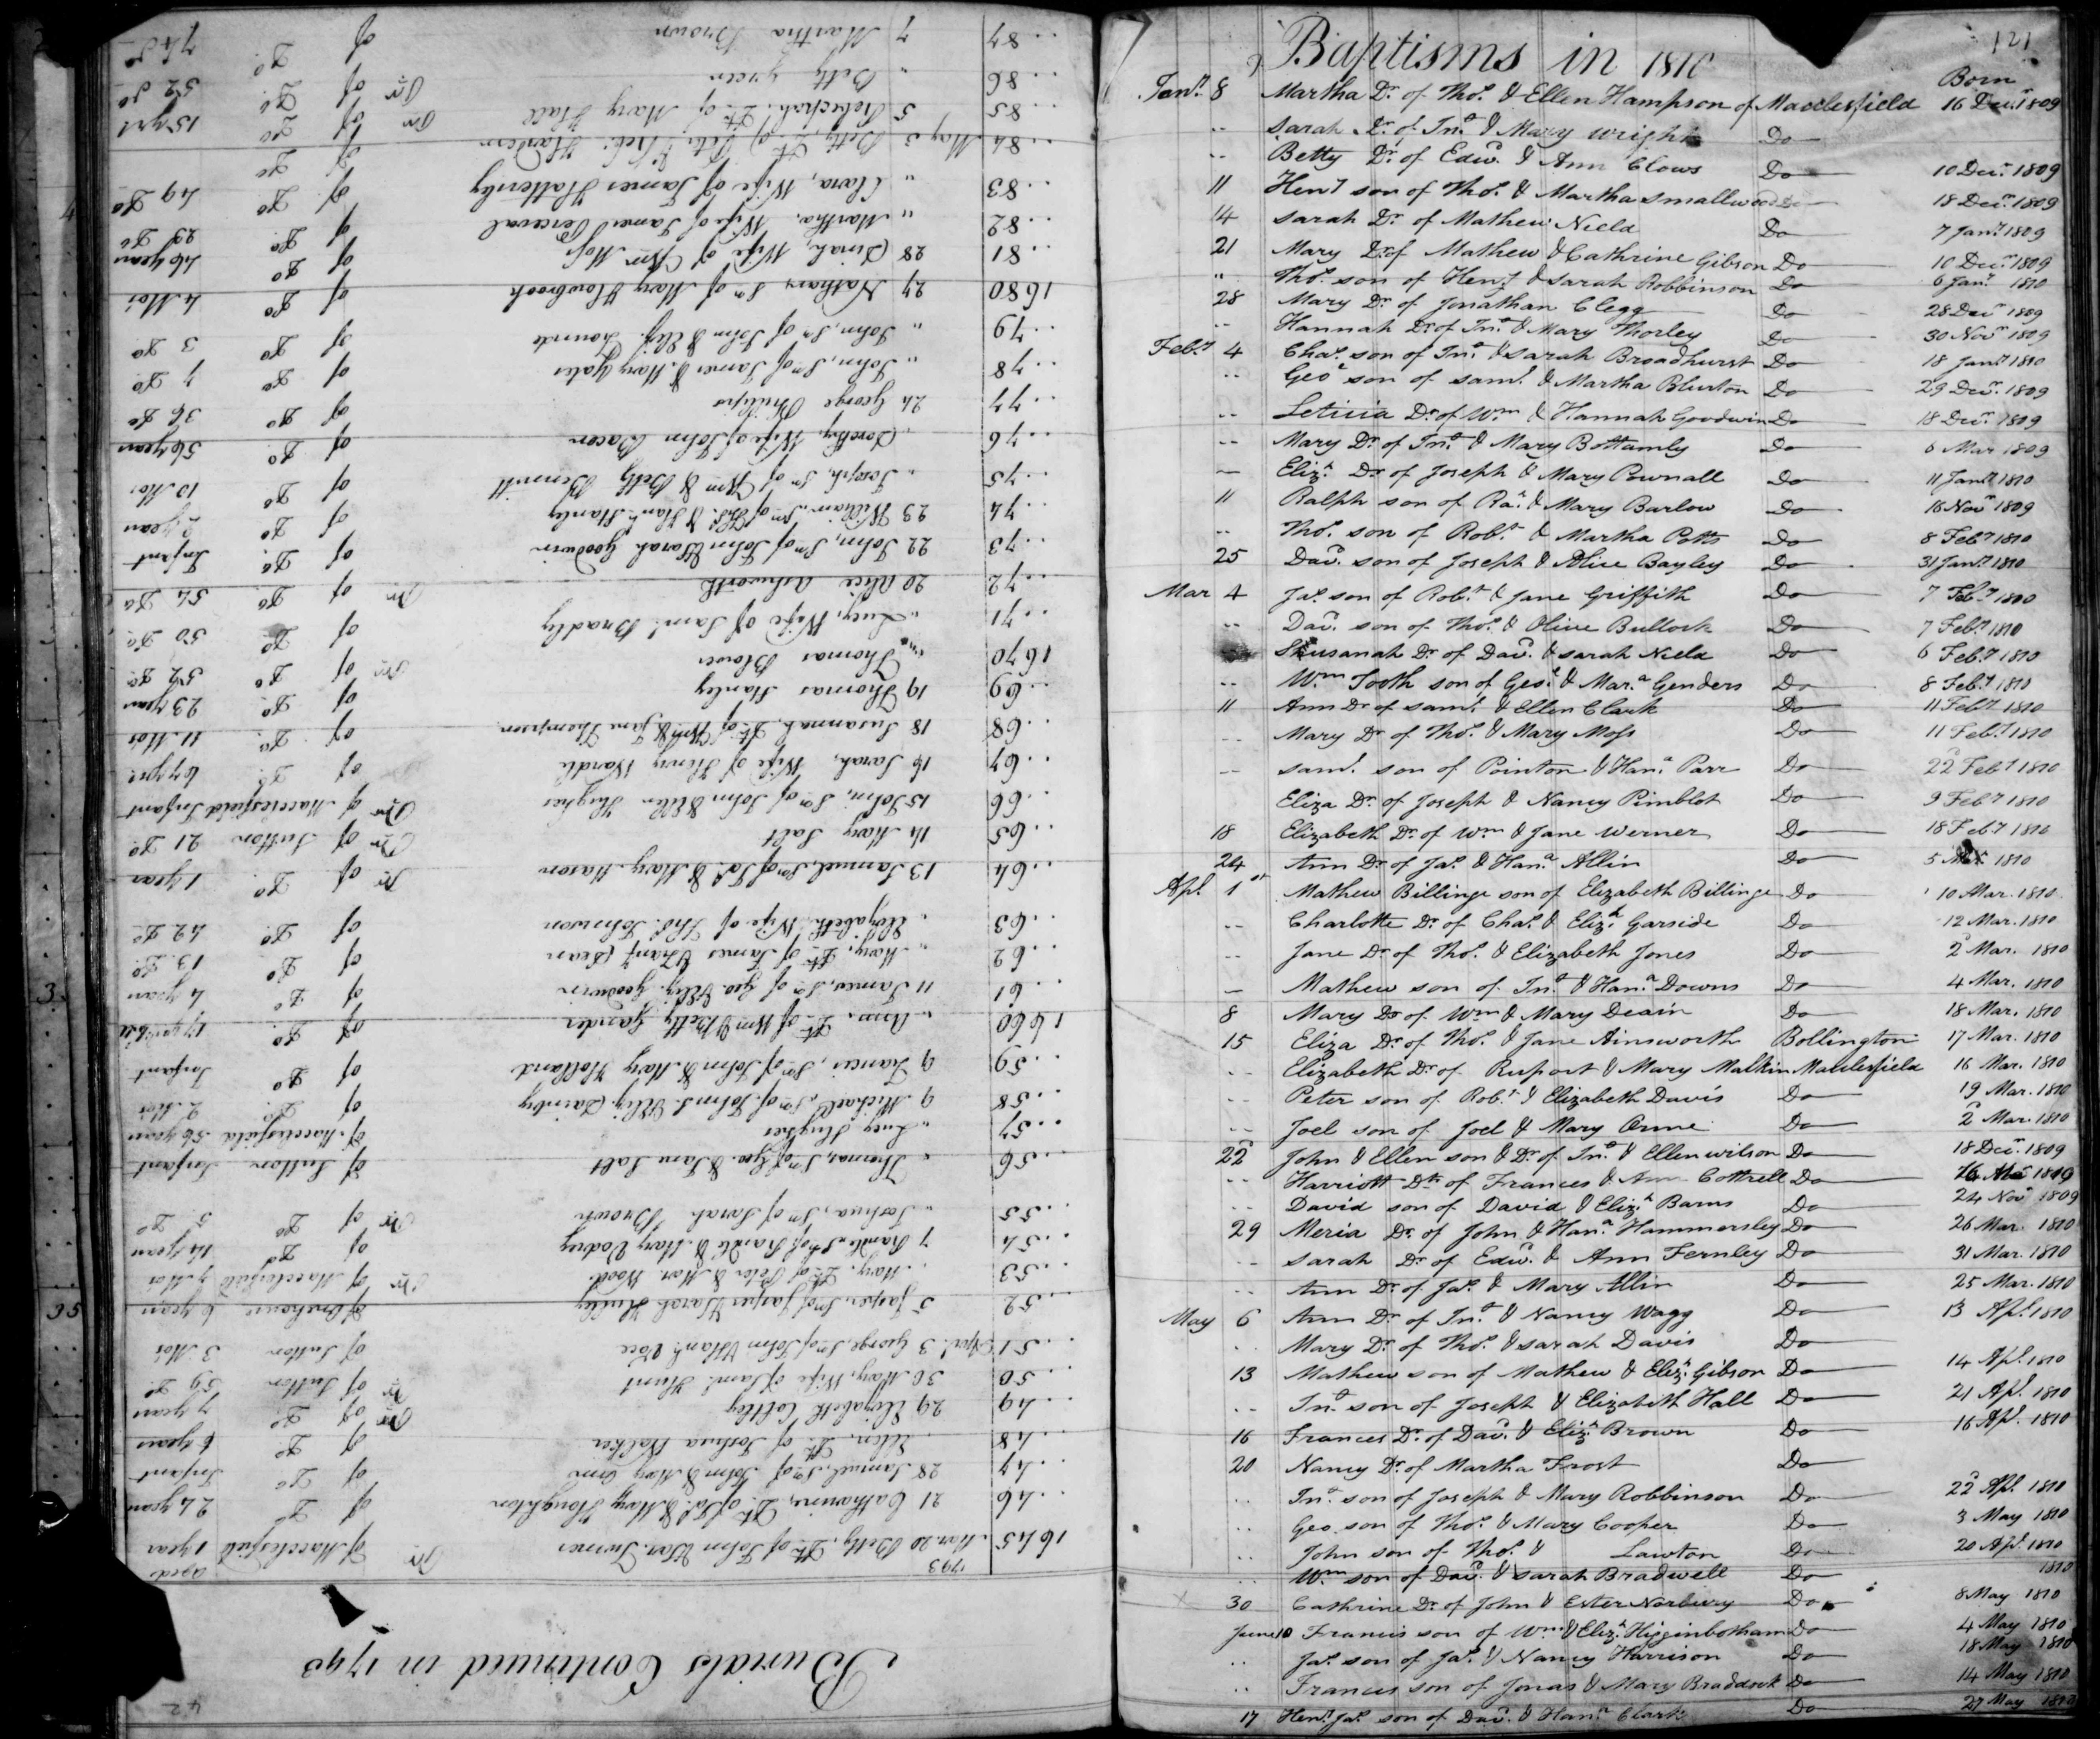 Burials Continued in 1793
1793 aged
1645 Mar. 20 Betty, Dr. of John Turner of Macclesfield 1 year
..46 21 Catharine, Dr. of Jas. & Mary Houghton of Do. 24 years
..47 28 Samuel, Sn. of John & Mary of Do. Infant
..48 Ellen, Dr. of Joshua Walker of Do. 6 years
..49 29 Elizabeth of Do. 7 years
..50 30 Mary, Wife of Saml. Hunt of Sutton 59 Do.
..51 April 3 George, Sn. of John of Sutton 3 Mos
..52 5 Jasper, Sn. of Jasper & Sarah Hulley of 6 years
..53 Mary, Dr. of Peter & Mar. Wood of Macclesfield 7 Mos
..54 7 Randle, Sn. of Randle & Mary Vadrey of Do. 14 years
..55 Joshua, Sn. of Sarah Brown of Do. 5 Do.
..56 Thomas, Sn. of Geo. & Jane Salt of Sutton Infant
..57 Lucy Hughes of Macclesfield 56 years
..58 9 Michael, Sn. of John & Eliz. of Do. 2 Mos
..59 9 Francis, Sn. of John & Mary Holland of Do. Infant
1660 Ann, Dr. of Wm. & Betty of Do.
..61 11 James, Sn. of Geo. & Eliz. Goodwin of Do. 4 years
..62 Mary, Dr. of James & Dean of Do. 13 Do.
..63 Elizabeth, Wife of Thos. Johnson of Do. 42 Do.
..64 13 Samuel, Sn. of Jas. & Mary Mason of Do. 1 year
..65 14 Mary Salt of Sutton 21 Do.
..66 15 John, Sn. of John & Ellen Hughes of Macclesfield Infant
..67 16 Sarah, Wife of Henry Wardle of Do. 67 yrs
..68 18 Susannah, Dr. of Wm. & Jane Thompson of Do. 11 Mos
..69 19 Thomas Stanley of Do. 23 years
1670 Thomas Blower of Do. 52 Do.
..71 Lucy, Wife of Saml. Bradly of Do. 50 Do.
..72 20 Alice Ashworth of Do. 54 Do.
..73 22 John, Sn. of John & Sarah Goodwin of Do. Infant
..74 23 William, Sn. of Thos. & Hanh. Stanley of Do. 2 years
..75 Joseph, Sn. of Wm. & Betty Bennett of Do. 10 Mos
..76 Dorothy, Wife of John Bacon of Do. 56 years
..77 24 George Phillips of Do. 36 Do.
..78 John, Sn. of James & Mary Yates of Do. 7 Do.
..79 John, Sn. of John & Eliz. of Do. 3 Do.
1680 27 Nathan, Sn. of Mary of Do. 4 Mos
..81 28 Dinah, Wife of Wm. Moss of Do. 46 years
..82 Martha, Wife of James Perceval of Do. 29 Do.
..83 Clara, Wife of James Hattersley of Do. 49 Do.
..84 May 3 Betty, Dr. of Hardern of Do.
..85 5 Dr. of Mary Hall of Do. 15 yrs
..86 Betty Green of Do. 52 Do.
..87 7 Martha Brown of Do.
121
Baptisms in 1810
Born
Jany. 8 Martha Dr. of Thos. & Ellen Hampson of Macclesfield 16 Decr. 1809
.. Sarah Dr. of Jno. & Mary Wright Do
.. Betty Dr. of Edwd. & Ann Clows Do 10 Decr. 1809
11 Heny son of Thos. & Martha Smallwood Do 18 Decr. 1809
14 Sarah Dr. of Mathew Nield Do 7 Jany. 1809
21 Mary Dr. of Mathew & Cathrine Gibson Do 10 Decr. 1809
" Thos. son of Heny. & Sarah Robbinson Do 6 Jany. 1810
28 Mary Dr. of Jonathan Clegg Do 28 Decr 1809
.. Hannah Dr. of Jno. & Mary Thorley Do 30 Novr 1809
Feby. 4 Chas. son of Jno. & Sarah Broadhurst Do 18 Jany. 1810
.. Geo. son of Saml. & Martha Blurton Do 29 Decr. 1809
.. Leticia Dr. of Wm. & Hannah Goodwin Do 18 Decr. 1809
.. Mary Dr. of Jno. & Mary Bottamly Do 6 Mar 1809
— Elizh. Dr. of Joseph & Mary Pownall Do 11 Jany. 1810
11 Ralph son of Ra. & Mary Barlow Do 16 Novr 1809
.. Thos. son of Robt. & Martha Potts Do 8 Feby. 1810
25 Davd. son of Joseph & Alice Bayley Do 31 Jany. 1810
Mar 4 Jas. son of Robt. & Jane Griffith Do 7 Feby. 1810
.. Davd. son of Thos. & Olive Bullock Do 7 Feby. 1810
Shusanah Dr. of Davd. & Sarah Nield Do 6 Feby. 1810
.. Wm. Tooth son of Geo. & Mara. Genders Do 8 Feby. 1810
11 Ann Dr. of Saml. & Ellen Clark Do 11 Feby. 1810
.. Mary Dr. of Thos. & Mary Moss Do 11 Feby. 1810
— Saml. son of Pointon & Hana. Parr Do 22 Feby. 1810
Eliza Dr. of Joseph & Nancy Pimblot Do 9 Feby. 1810
18 Elizabeth Dr. of Wm. & Jane Werner Do 18 Feby. 1810
24 Ann Dr. of Jas. & Hana. Allin Do 5 Mar 1810
Apl. 1st Mathew Billinge son of Elizabeth Billinge Do 10 Mar. 1810
.. Charlotte Dr. of Chas. & Elizh. Garside Do 12 Mar. 1810
.. Jane Dr. of Thos. & Elizabeth Jones Do 2 Mar. 1810
— Mathew son of Jno. & Hana. Downs Do 4 Mar. 1810
8 Mary Dr. of Wm. & Mary Deain Do 18 Mar. 1810
15 Eliza Dr. of Thos. & Jane Ainsworth Bollington 17 Mar. 1810
.. Elizabeth Dr. of Rupart & Mary Malkin Macclesfield 16 Mar. 1810
.. Peter son of Robt. & Elizabeth Davis Do 19 Mar. 1810
.. Joel son of Joel & Mary Orme Do 2 Mar. 1810
22 John & Ellen son & Dr. of Jno. & Ellen Wilson Do 18 Decr. 1809
.. Harriott Dr. of Frances & Ann Cottrell Do 1809
.. David son of David & Elizh. Barns Do 24 Novr 1809
29 Meria Dr. of John & Hana. Hammersley Do 26 Mar. 1810
.. Sarah Dr. of Edwd. & Ann Fernley Do 31 Mar. 1810
.. Ann Dr. of Jas. & Mary Allin Do 25 Mar. 1810
May 6 Ann Dr. of Jno. & Nancy Wagg Do 13 Apl. 1810
.. Mary Dr. of Thos. & Sarah Davis Do
13 Mathew son of Mathew & Elizh. Gibson Do 14 Apl. 1810
.. Jno. son of Joseph & Elizabeth Hall Do 21 Apl. 1810
16 Frances Dr. of Davd. & Elizh. Brown Do 16 Apl. 1810
20 Nancy Dr. of Martha Frost Do
.. Jno. son of Joseph & Mary Robbinson Do 22 Apl. 1810
.. Geo. son of Thos. & Mary Cooper Do 3 May 1810
.. John son of Thos. & Lawton Do 20 Apl. 1810
.. Wm. son of Davd. & Sarah Bradwell Do 1810
30 Cathrine Dr. of John & Ester Norbury Do 8 May 1810
June 10 Francis son of Wm. & Elizh. Higginbotham Do 4 May 1810
.. Jas. son of Jas. & Nancy Harrison Do 18 May 1810
.. Frances son of Jonas & Mary Braddock Do 14 May 1810
17 Heny. Jas. son of Davd. & Hana. Clark Do 27 May 1810